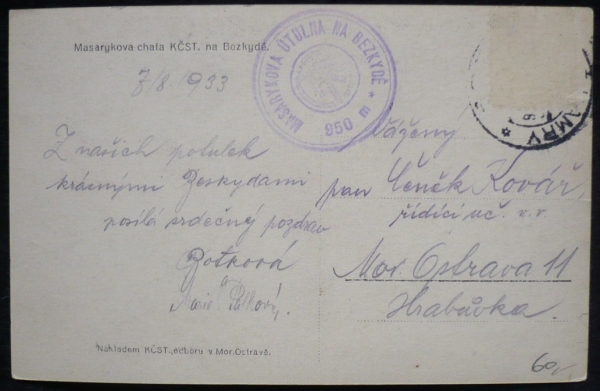 Masarykova chata KČST. na Bezkydě.
7/8 933
MASARYKOVA ÚTULNA NA BEZKYDĚ * 950 m
Z našich potulek
krásnými Beskydami
posílá srdečný pozdrav
Botková
a
Marie
Vážený
pan Čeněk Kovář,
řídící uč. v. v.
Mor. Ostrava 11
Hrabůvka.
Nákladem KČST., odboru v Mor. Ostravě.
60,-